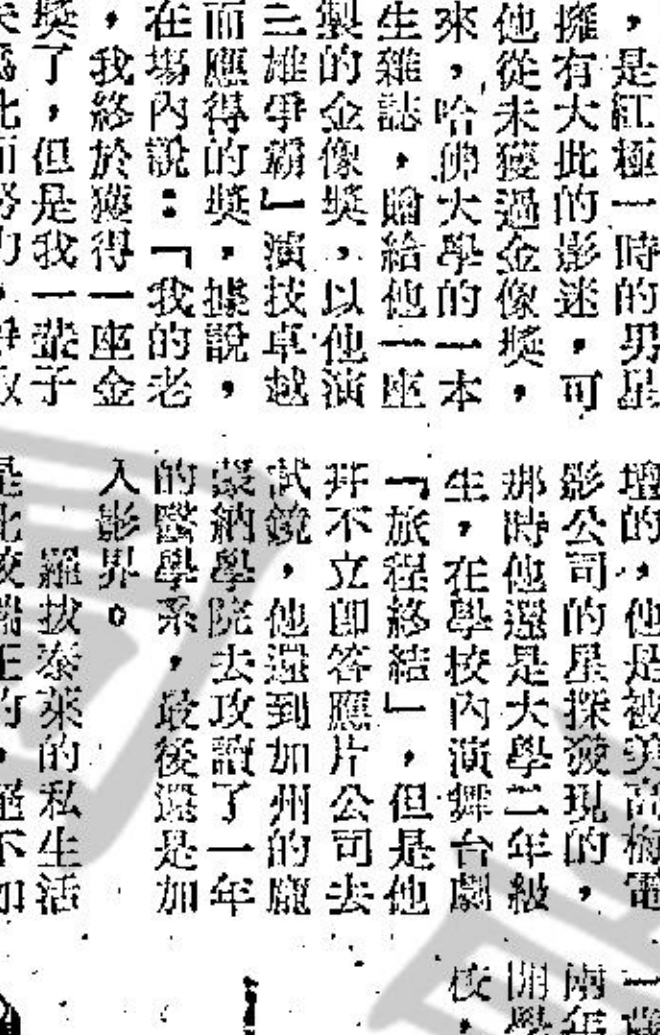 ，是紅極一時的男星
擁有大此的影迷，可
他從未獲過金像獎，
來，哈佛大學的一本
生雜誌，贈給他一座
製的金像獎，以他演
三雄爭霸」演技卓越
而應得的獎，據說，
在場內說：「我的老
，我終於獲得一座金
獎了，但是我一輩子
壇的，他是被美高梅電
影公司的星探發現的，
那時他還是大學二年級
生，在學校內演舞台劇
「旅程終結」，但是他
并不立卽答應片公司去
試鏡，他還到加州的龐
蒙納學院去攻讀了一年
的醫學系，最後還是加
入影界。
羅拔泰萊的私生活
一
兩年
開學
校，